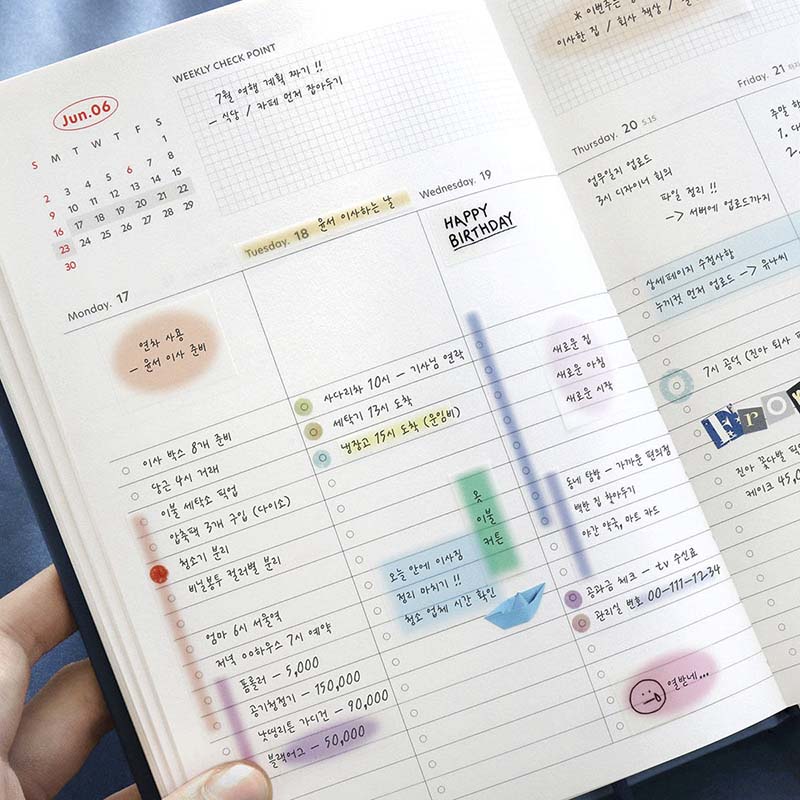 Jun.06
WEEKLY CHECK POINT
7월 여행 계획 짜기 !!
– 식당 / 카페 먼저 잡아두기
S M T W T F S
1
2 3 4 5 6 7 8
9 10 11 12 13 14 15
16 17 18 19 20 21 22
23 24 25 26 27 28 29
30
Monday. 17
연차 사용
– 윤서 이사 준비
이사 박스 8개 준비
당근 4시 거래
이불 세탁소 픽업
압축팩 3개 구입 (다이소)
청소기 분리
비닐봉투 컬러별 분리
엄마 6시 서울역
저녁 00하우스 7시 예약
폼롤러 – 5,000
공기청정기 – 150,000
낫띵리튼 가디건 – 90,000
블랙어그 – 50,000
Tuesday. 18 윤서 이사하는 날
사다리차 10시 – 기사님 연락
세탁기 13시 도착
냉장고 15시 도착 (운임비)
옷
이불
커튼
오늘 안에 이사짐
정리 마치기 !!
청소 업체 시간 확인
Wednesday. 19
HAPPY
BIRTHDAY
새로운 집
새로운 아침
새로운 시작
동네 탐방 – 가까운 편의점
백반 집 찾아두기
야간 약국, 마트 카드
공과금 체크 – tv 수신료
관리실 번호 00-111-12-34
열받네...
* 이번주는
이사한 집 / 회사 책상 /
Thursday. 20 5.15
업무일지 업로드
3시 디자이너 회의
파일 정리 !!
–> 서버에 업로드까지
상세페이지 수정사항
누끼컷 먼저 업로드 –> 유나씨
7시 공덕 (진아 퇴사
Fro
진아 꽃다발
케이크 45,0
Friday. 21
주말
1.
2.